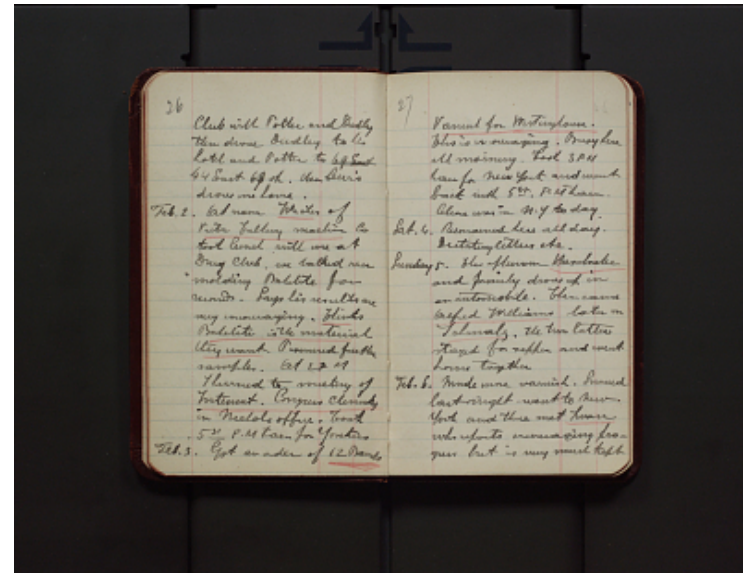 26
Club with Potter and Dudley
then drove Dudley to his
hotel and Potter to 69 East
64 East 69th. Then Lewis
drove me home.
Feb. 2. At noon of
Talking machine Co
took lunch with me at
Drug Club, we talked over
molding Bakelite for
records. Says his results are
very encouraging. Thinks
Bakelite is the material
they want. Promised further
samples. At 2 P.M
I hurried to meeting of
Interest. Congress Chemistry
in Nichols office. Took
5 P.M train for Yonkers
Feb. 3. Got an order of 12
27
Varnish for Westinghouse.
This is encouraging. Busy here
all morning. Took 3 P.M
train for New York and went
back with 5 P.M train.
was in N.Y to day.
Sat. 4. Remained here all day.
Dictating letters etc.
Sunday 5. This afternoon
and family drove up in
an automobile. Then came
Alfred Williams later on
The two latter
stayed for supper and went
home together
Feb. 6. Made more varnish.
last night went to New-
York and there met
who reports encouraging pro-
gress but is very much kept